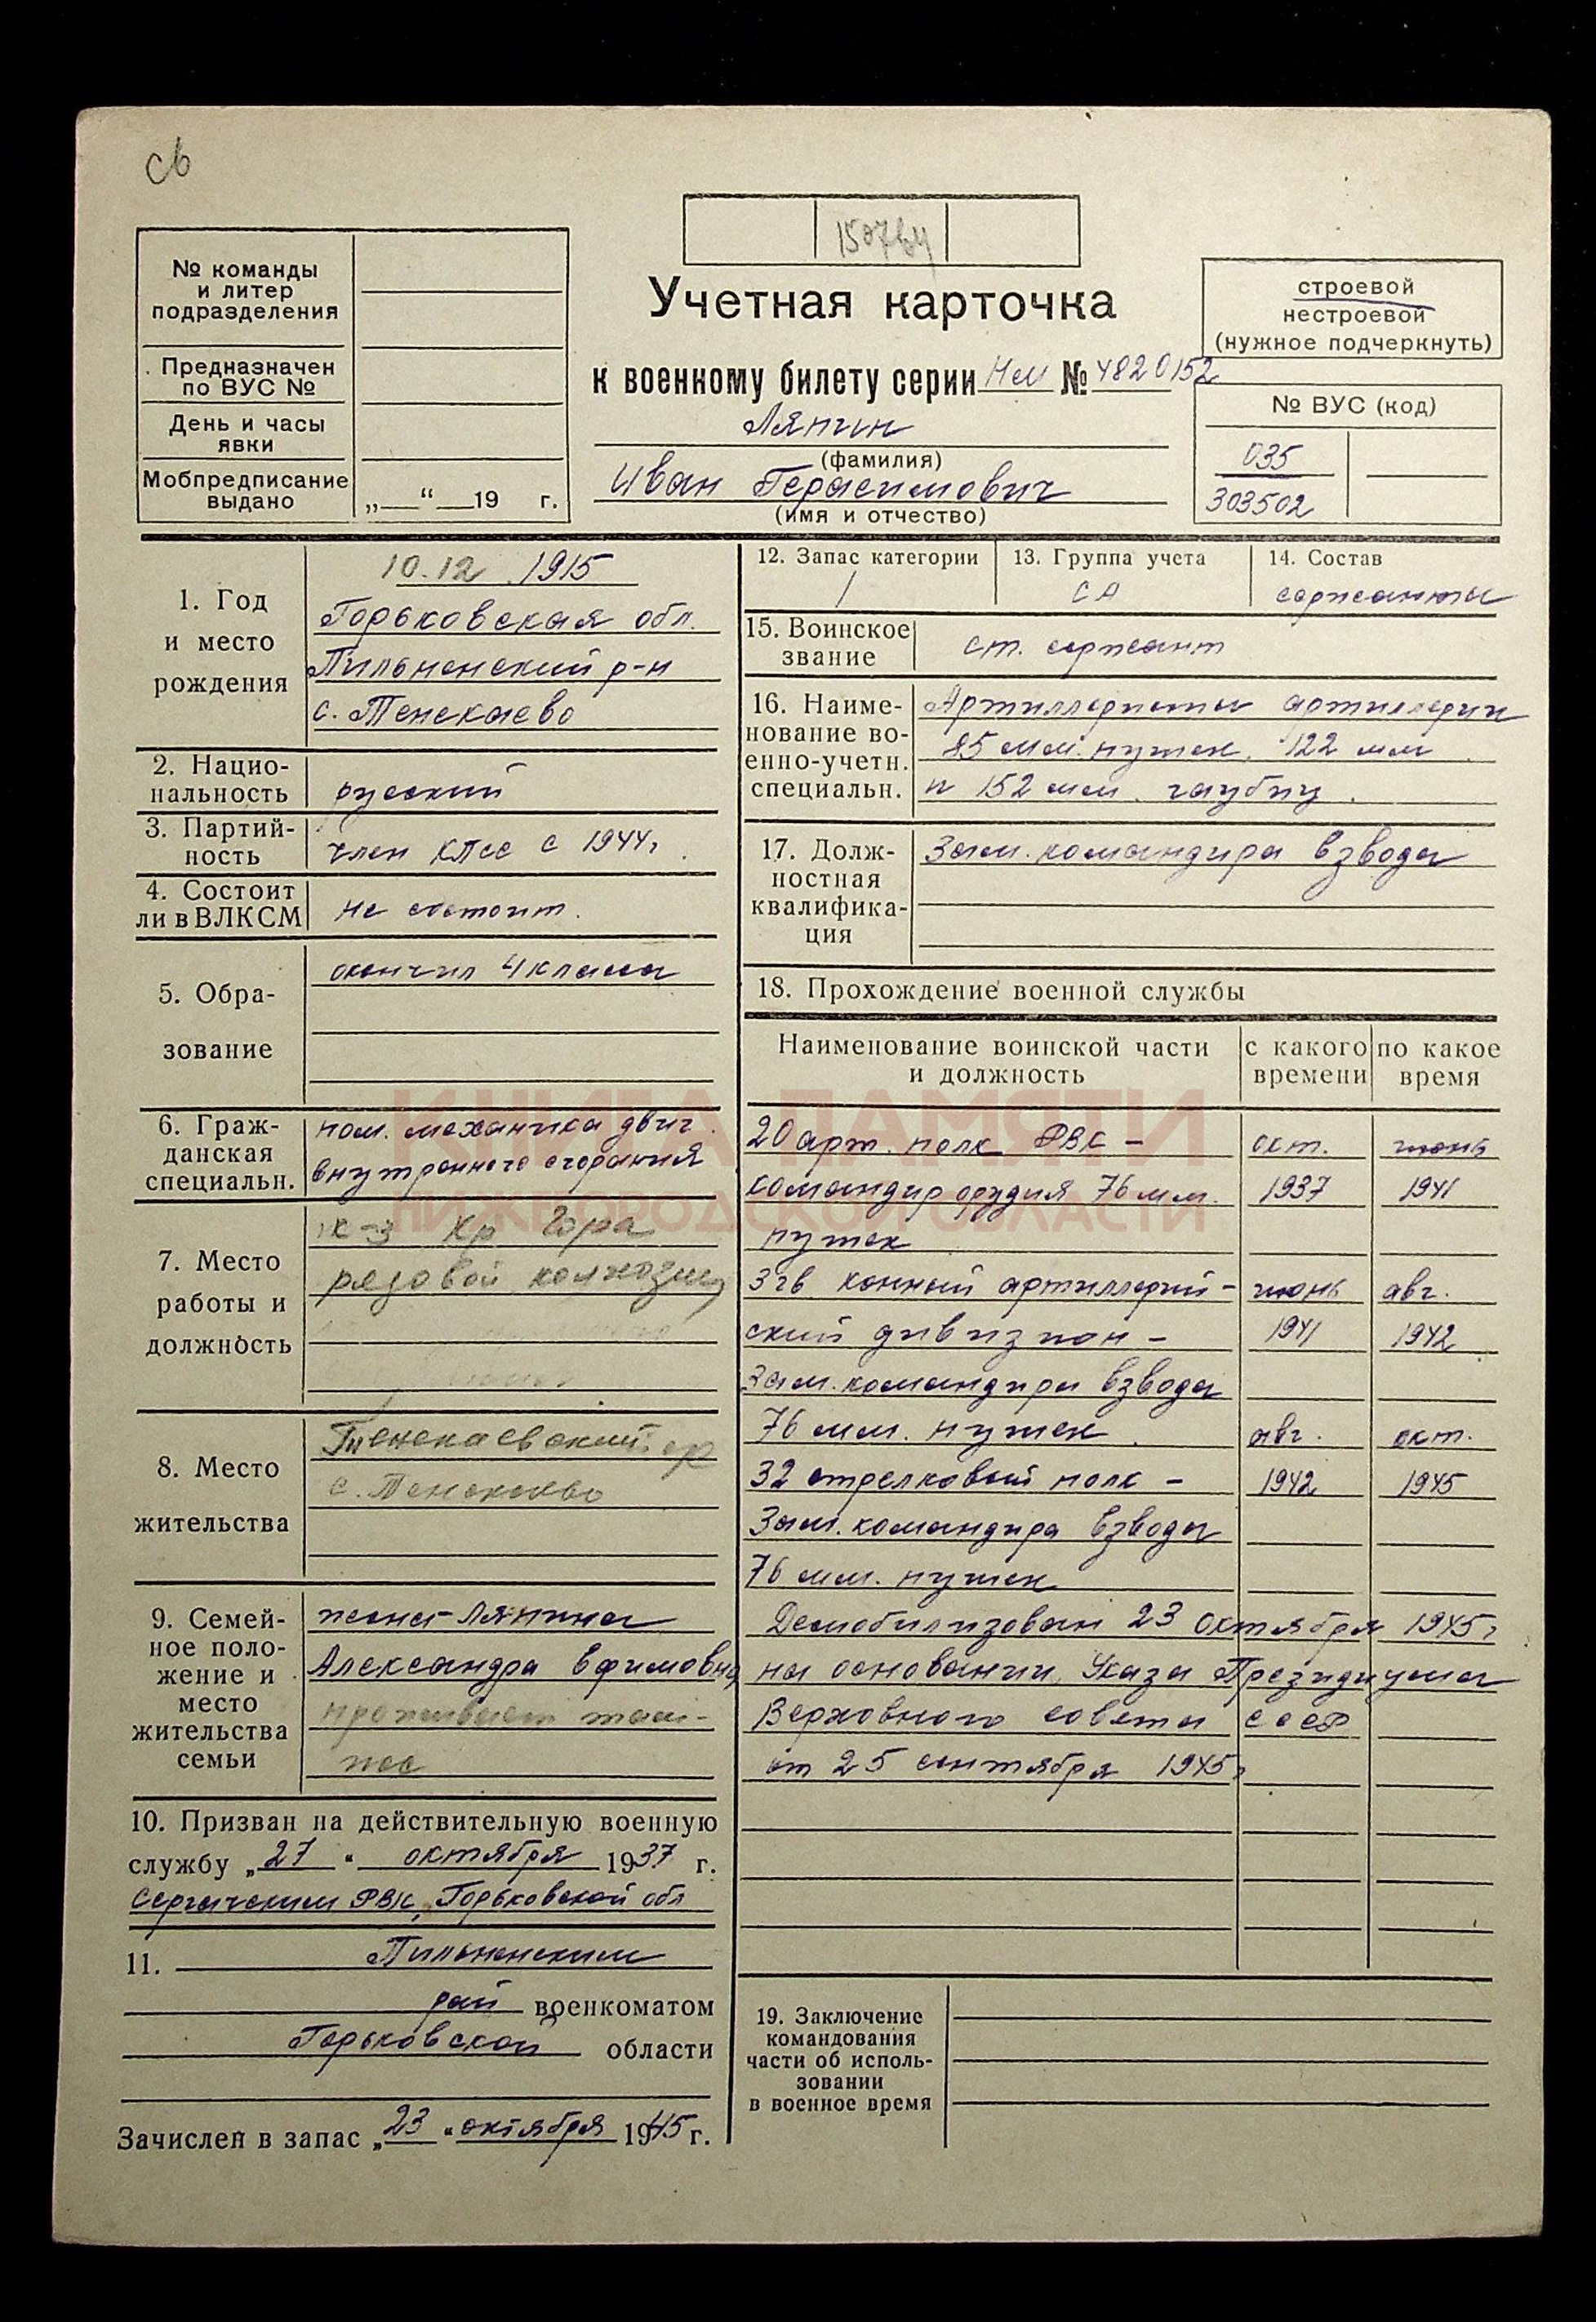 св
150764
№ команды
и литер
подразделения
Предназначен
по ВУС №
День и часы
явки
Мобпредписание
выдано
„ “ 19 г.
Учетная карточка
к военному билету серии Нм № 4820152
Ляпин
(фамилия)
Иван Герасимович
(имя и отчество)
строевой
нестроевой
(нужное подчеркнуть)
№ ВУС (код)
035
303502
1. Год
и место
рождения
10.12.1915
Горьковская обл.
Пильненский р-н
с. Тенекаево
2. Национальность
русский
3. Партийность
член КПСС с 1944г.
4. Состоит
ли в ВЛКСМ
не состоит.
5. Образование
окончил 4 класса
6. Гражданская
специальн.
пом. механика двиг.
внутреннего сгорания
7. Место
работы и
должность
к-з Кр Гора
рядовой колхозник
8. Место
жительства
Тенекаевский ср
с. Тенекаево
9. Семейное поло-
жение и
место
жительства
семьи
жена-Ляпина
Александра Ефимовна
проживает там-
же
10. Призван на действительную военную
службу „27“ октября 1937 г.
Сергачским РВК, Горьковской обл
11. Пильненским
рай военкоматом
Горьковской области
Зачислен в запас „23“ октября 1945 г.
12. Запас категории
1
13. Группа учета
СА
14. Состав
сержанты
15. Воинское
звание
ст. сержант
16. Наиме-
нование во-
енно-учетн.
специальн.
Артиллеристы артиллерии
85 мм. пушек, 122 мм
и 152 мм. гаубиц.
17. Долж-
ностная
квалифика-
ция
Зам. командира взвода
18. Прохождение военной службы
Наименование воинской части
и должность
с какого
времени
по какое
время
20 арт. полк РВК – окт. июнь
командир орудия 76 мм. 1937 1941
пушек
3 гв конный артиллерий- июнь авг.
ский дивизион – 1941 1942
Зам. командира взвода
76 мм. пушек авг. окт.
32 стрелковый полк – 1942 1945
Зам. командира взвода
76 мм. пушек
Демобилизован 23 октября 1945г
на основании Указа Президиума
Верховного совета СССР
от 25 сентября 1945г
19. Заключение
командования
части об исполь-
зовании
в военное время
КНИГА ПАМЯТИ
НИЖЕГОРОДСКОЙ ОБЛАСТИ